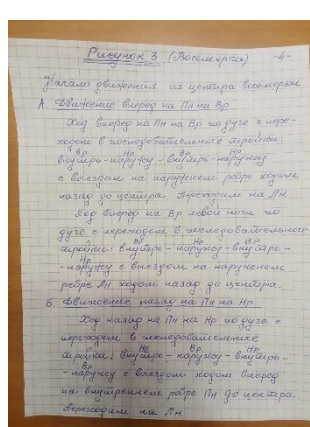 Рисунок 3 (Восьмерка) -4-
Начало движения из центра восьмерки
А. Движение вперед на Пн на Вр
Ход вперед на Пн на Вр по дуге с пере-
ходом в последовательные тройки:
Вр Нр Вр Нр
внутрь-наружу-внутрь-наружу
с выездом на наружном ребре ходом
назад до центра. Переходим на Лн
Ход вперед на Вр левой ноги по
дуге с переходом в последовательные
Вр Нр Вр
тройки: внутрь-наружу-внутрь-
Нр
-наружу с выездом на наружном
ребре Лн ходом назад до центра.
Б. Движение назад на Пн на Нр.
Ход назад на Пн на Нр по дуге с
переходом в последовательные
Нр Вр Нр
тройки: внутрь-наружу-внутрь-
Вр
-наружу с выездом ходом вперед
на внутреннем ребре Пн до центра.
Переходим на Лн